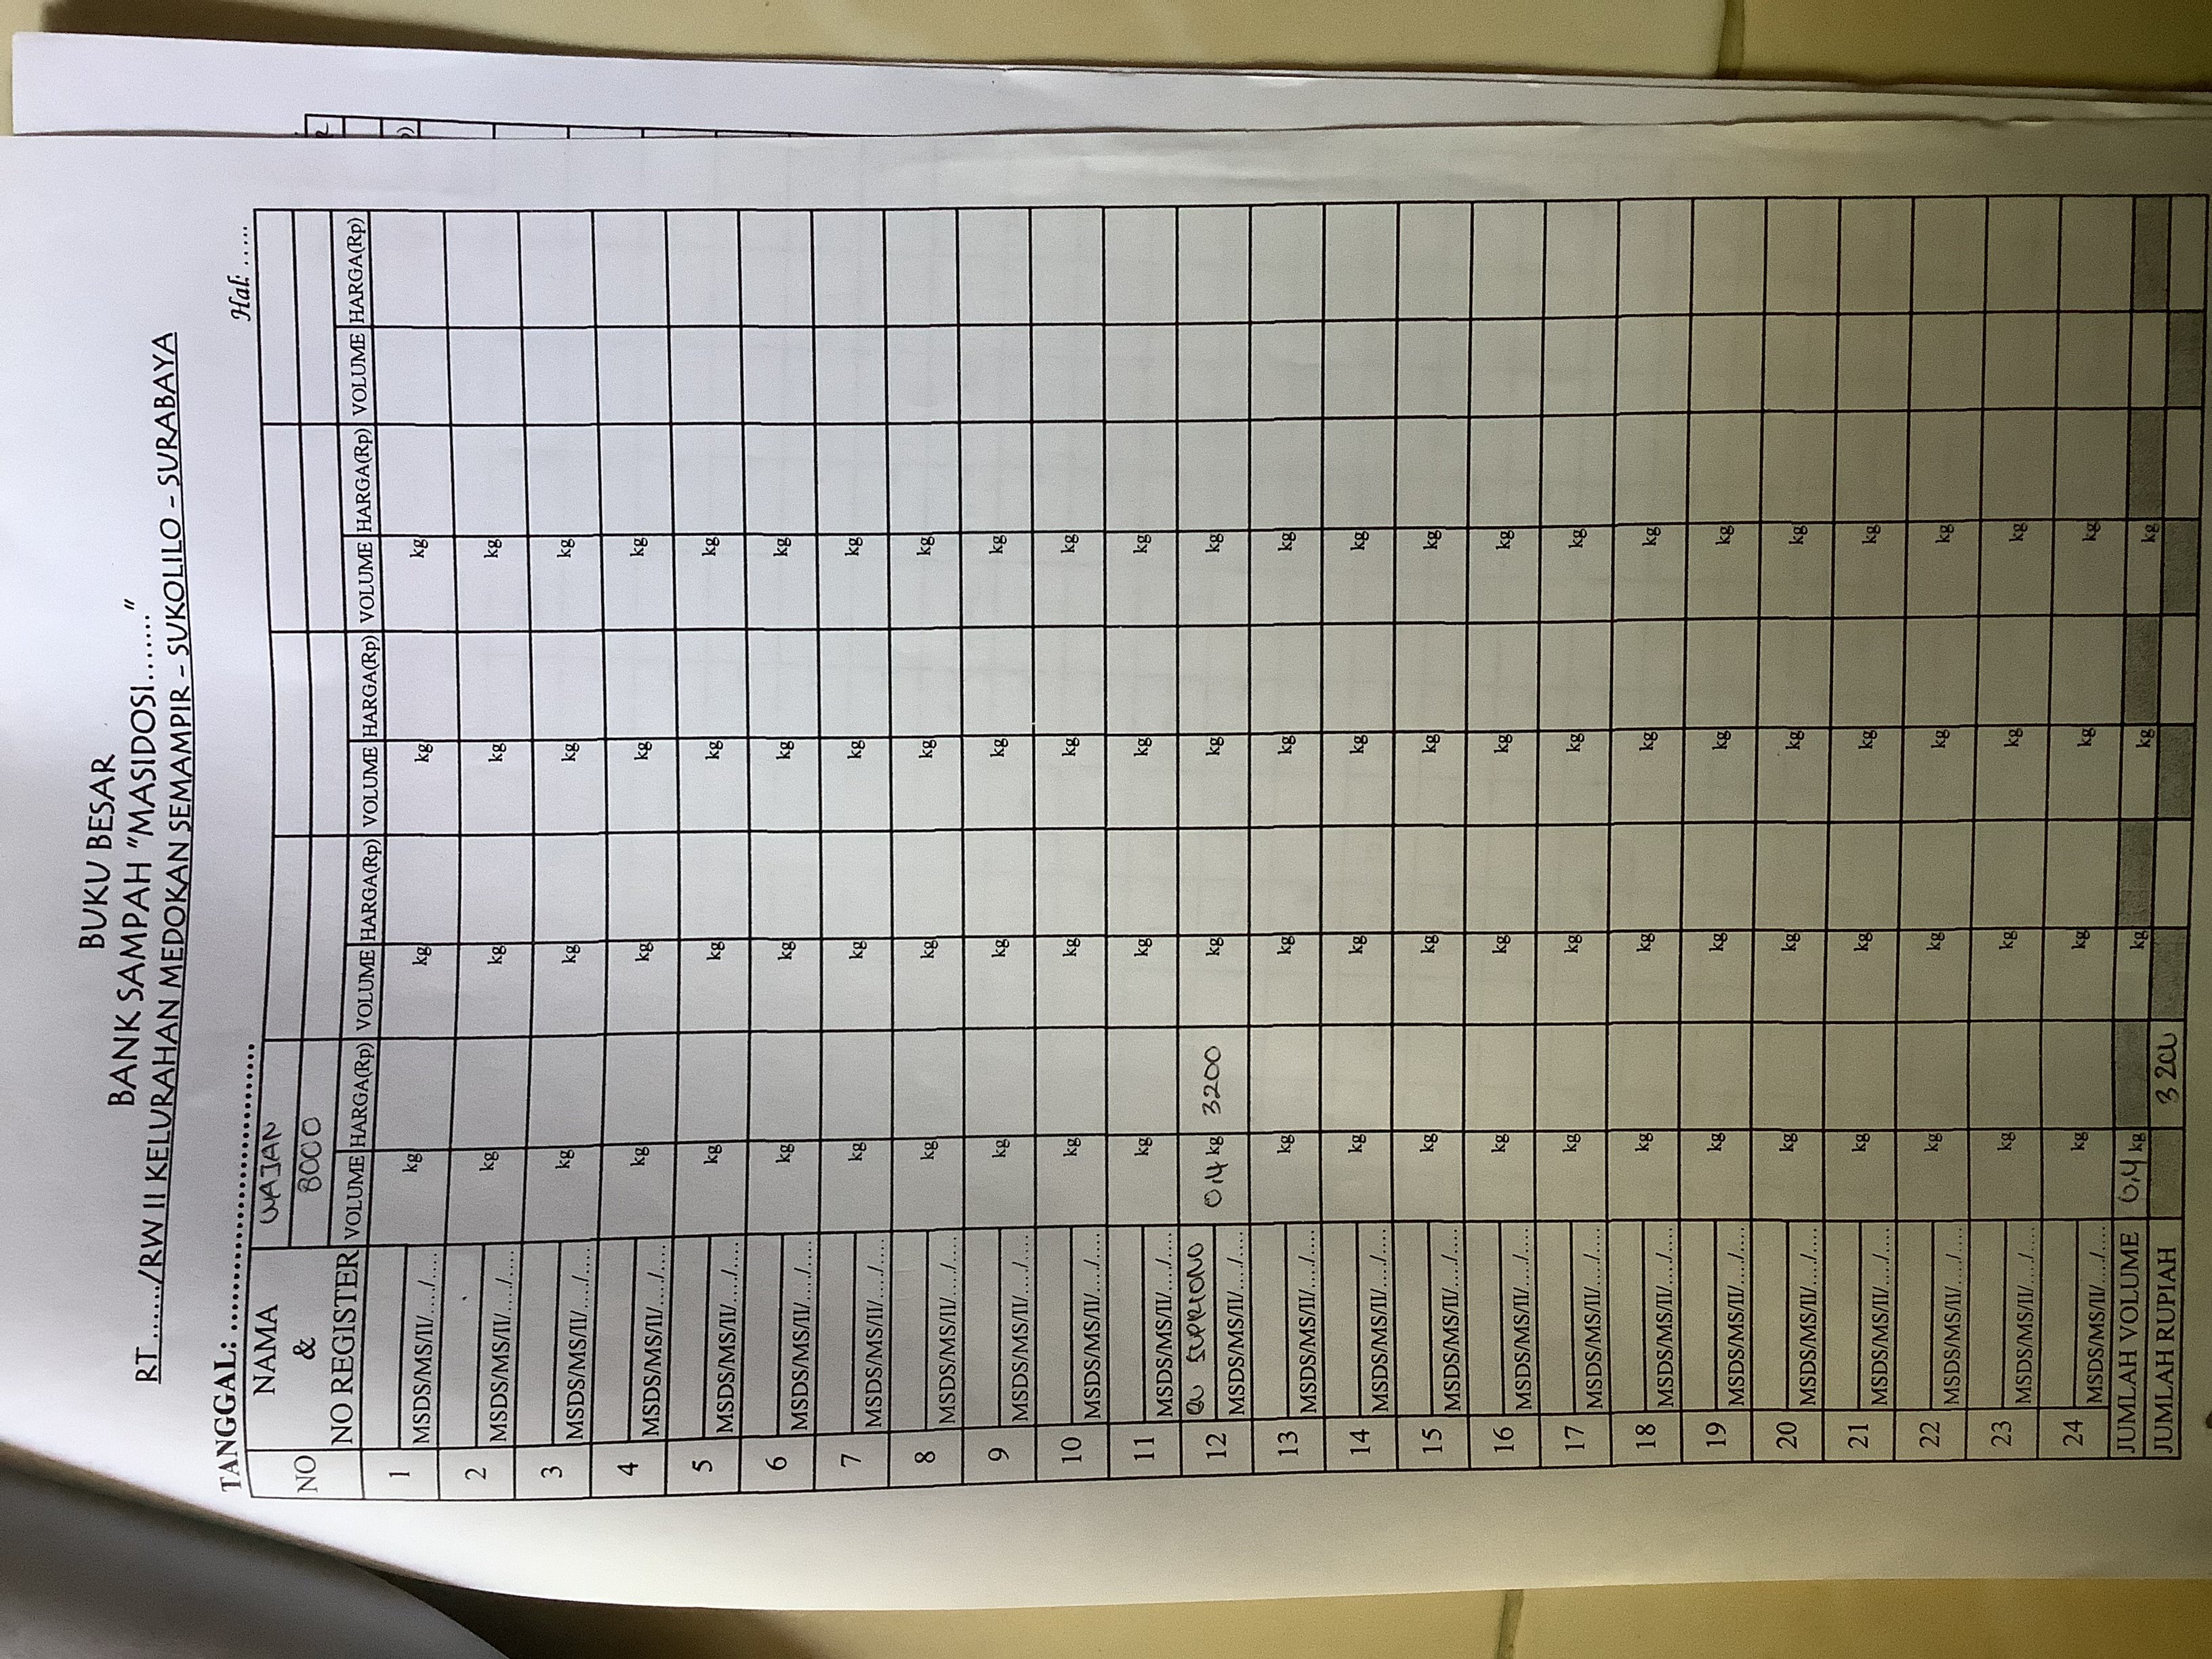 BUKU BESAR
BANK SAMPAH "MASIDOSI......."
RT ....../RW II KELURAHAN MEDOKAN SEMAMPIR - SUKOLILO - SURABAYA
TANGGAL: ..............................
Hal: .....
NO NAMA & NO REGISTER WAJAN
8000
VOLUME HARGA(Rp) VOLUME HARGA(Rp) VOLUME HARGA(Rp) VOLUME HARGA(Rp) VOLUME HARGA(Rp)
1 MSDS/MS/II/..../.... kg kg kg kg
2 MSDS/MS/II/..../.... kg kg kg kg
3 MSDS/MS/II/..../.... kg kg kg kg
4 MSDS/MS/II/..../.... kg kg kg kg
5 MSDS/MS/II/..../.... kg kg kg kg
6 MSDS/MS/II/..../.... kg kg kg kg
7 MSDS/MS/II/..../.... kg kg kg kg
8 MSDS/MS/II/..../.... kg kg kg kg
9 MSDS/MS/II/..../.... kg kg kg kg
10 MSDS/MS/II/..../.... kg kg kg kg
11 MSDS/MS/II/..../.... kg kg kg kg
12 BU SUPRIONO MSDS/MS/II/..../.... 0,4 kg 3200 kg kg kg
13 MSDS/MS/II/..../.... kg kg kg kg
14 MSDS/MS/II/..../.... kg kg kg kg
15 MSDS/MS/II/..../.... kg kg kg kg
16 MSDS/MS/II/..../.... kg kg kg kg
17 MSDS/MS/II/..../.... kg kg kg kg
18 MSDS/MS/II/..../.... kg kg kg kg
19 MSDS/MS/II/..../.... kg kg kg kg
20 MSDS/MS/II/..../.... kg kg kg kg
21 MSDS/MS/II/..../.... kg kg kg kg
22 MSDS/MS/II/..../.... kg kg kg kg
23 MSDS/MS/II/..../.... kg kg kg kg
24 MSDS/MS/II/..../.... kg kg kg kg
JUMLAH VOLUME 0,4 kg kg kg kg
JUMLAH RUPIAH 3200